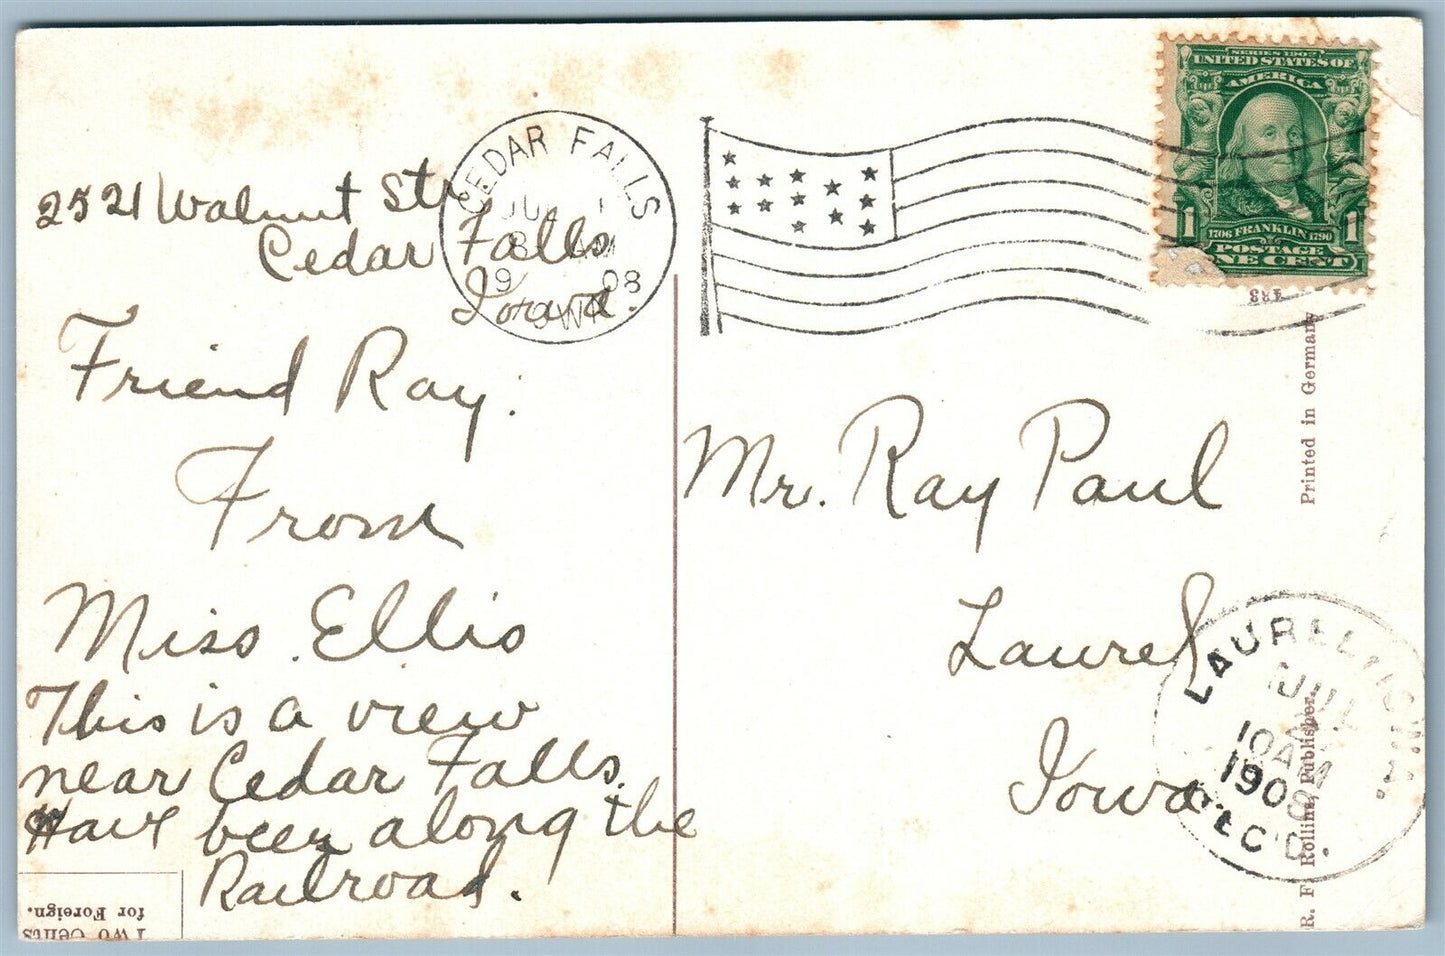 2521 Walnut Str
Cedar Falls
Iowa.
Friend Ray:
From
Miss Ellis
This is a view
near Cedar Falls.
Have been along the
Railroad.
CEDAR FALLS
JUL 1
8 AM
19 08
IOWA
SERIES 1902
UNITED STATES OF
AMERICA
1 1
1706 FRANKLIN 1790
POSTAGE
ONE CENT
Mr. Ray Paul
Laurel
Iowa.
LAUREL, IOWA.
JUL
10 AM
1908
REC'D.
Printed in Germany
R. F. Rollins, Publisher,
Two Cents
for Foreign.